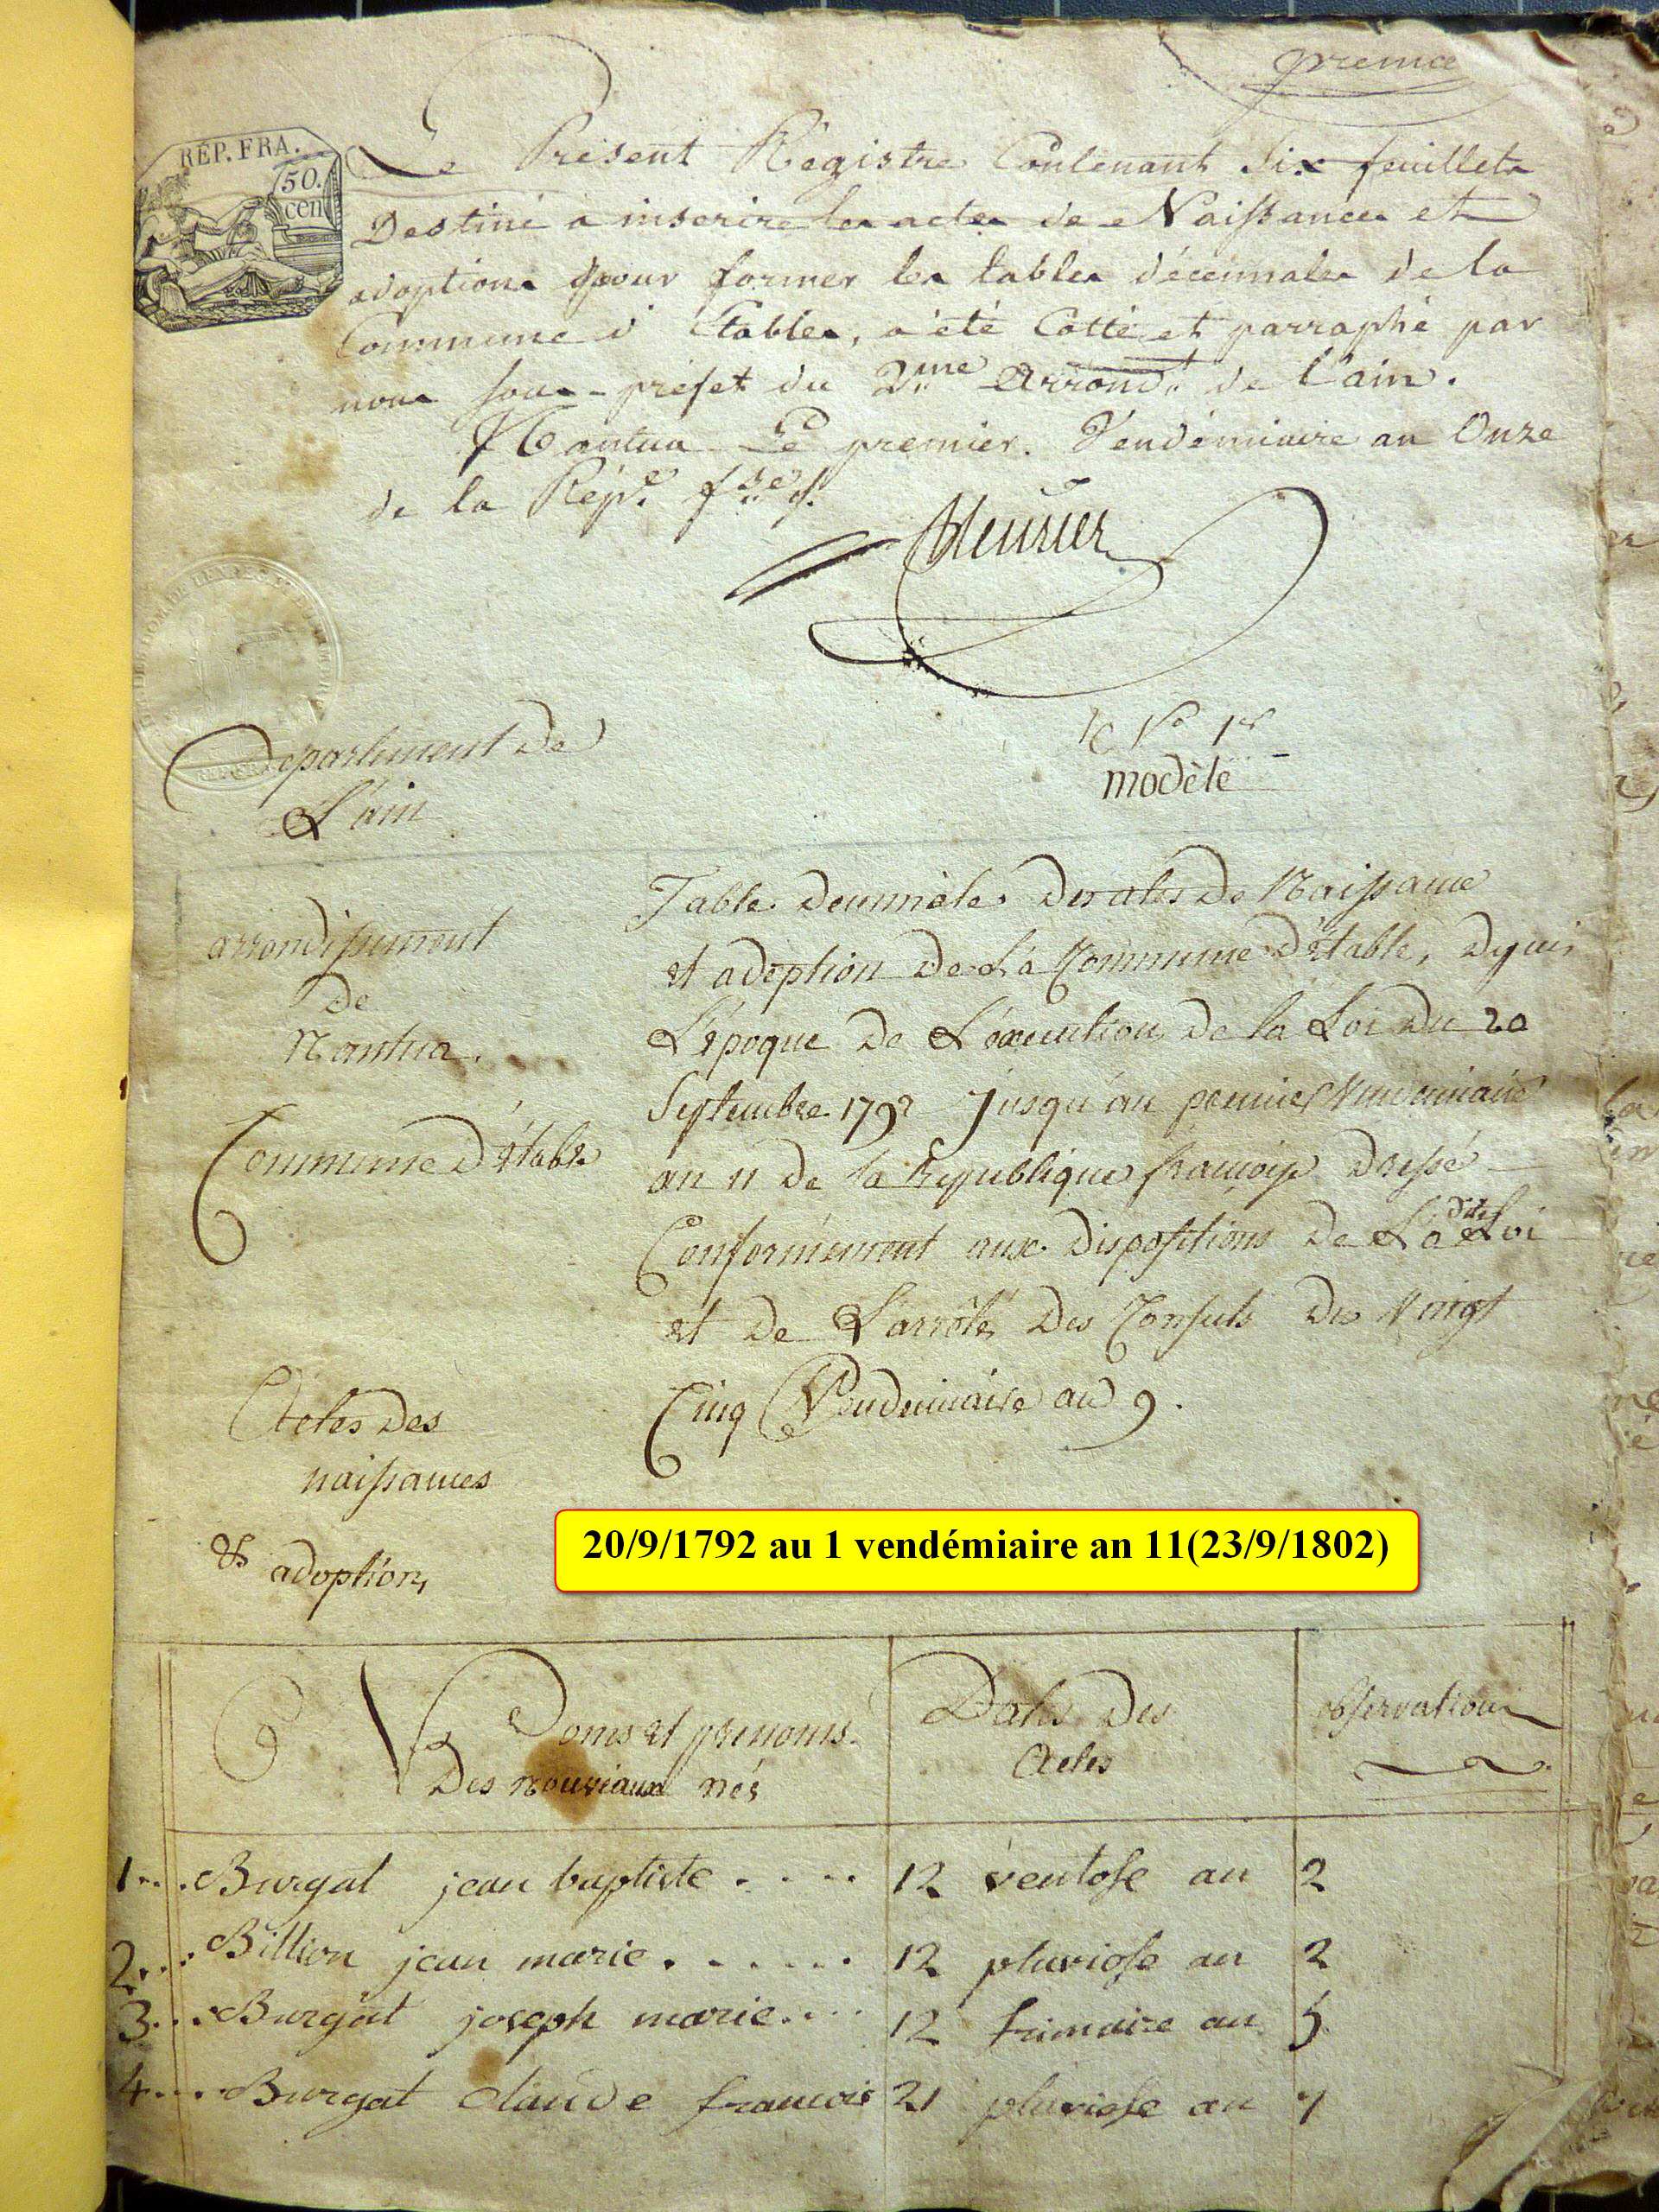 premier
RÉP. FRA.
50.
cen
Le Présent Régistre Contenant Six feuillets
Destiné à inscrire les actes de Naissances et
adoptions pour former les tables décennales de la
Commune d'Etables, a été Cotté et parraphé par
nous sous-préfet du 2me Arrondt de l'ain.
Nantua Le premier Vendémiaire an Onze
de la Répe fse
Département De
L'ain
No 1er
modèle
arrondissement
De
Nantua.
Commune D'étable
Table Deunnèle Des actes De Naissance
et adoption De La Commune D'étable, Depuis
L'époque De L'éxecution de la Loi Du 20
Septembre 1792 jusqu'au premier Vendemiaire
an 11 De la Republique françoise Dressé
Conformément aux Dispositions De La dite Loi
et De L'arrôté Des Consuls Du Vingt
Cinq Vendemiaire an 9.
Actes Des
naissances
& adoptions
20/9/1792 au 1 vendémiaire an 11(23/9/1802)
Noms et prenoms
Des nouveaux nés
Dates Des
Actes
observations
1... Burgat jean baptiste .... 12 ventose an 2
2... Billion jean marie ...... 12 pluviose an 2
3... Burgat joseph marie.... 12 frimaire an 5
4.... Burgat claude francois 21 pluviose an 7